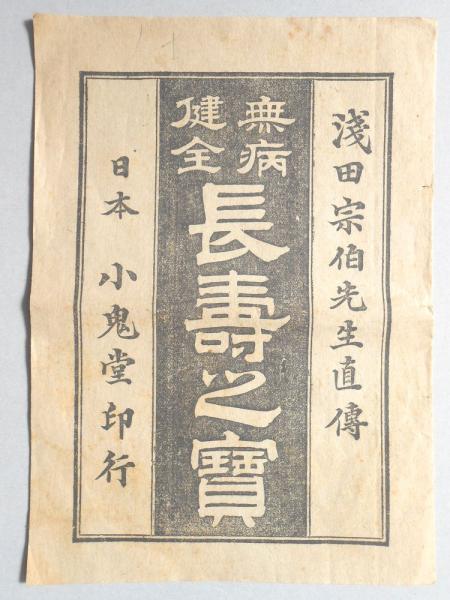 淺田宗伯先生直傳
無病
健全
長壽之寶
日本 小鬼堂印行